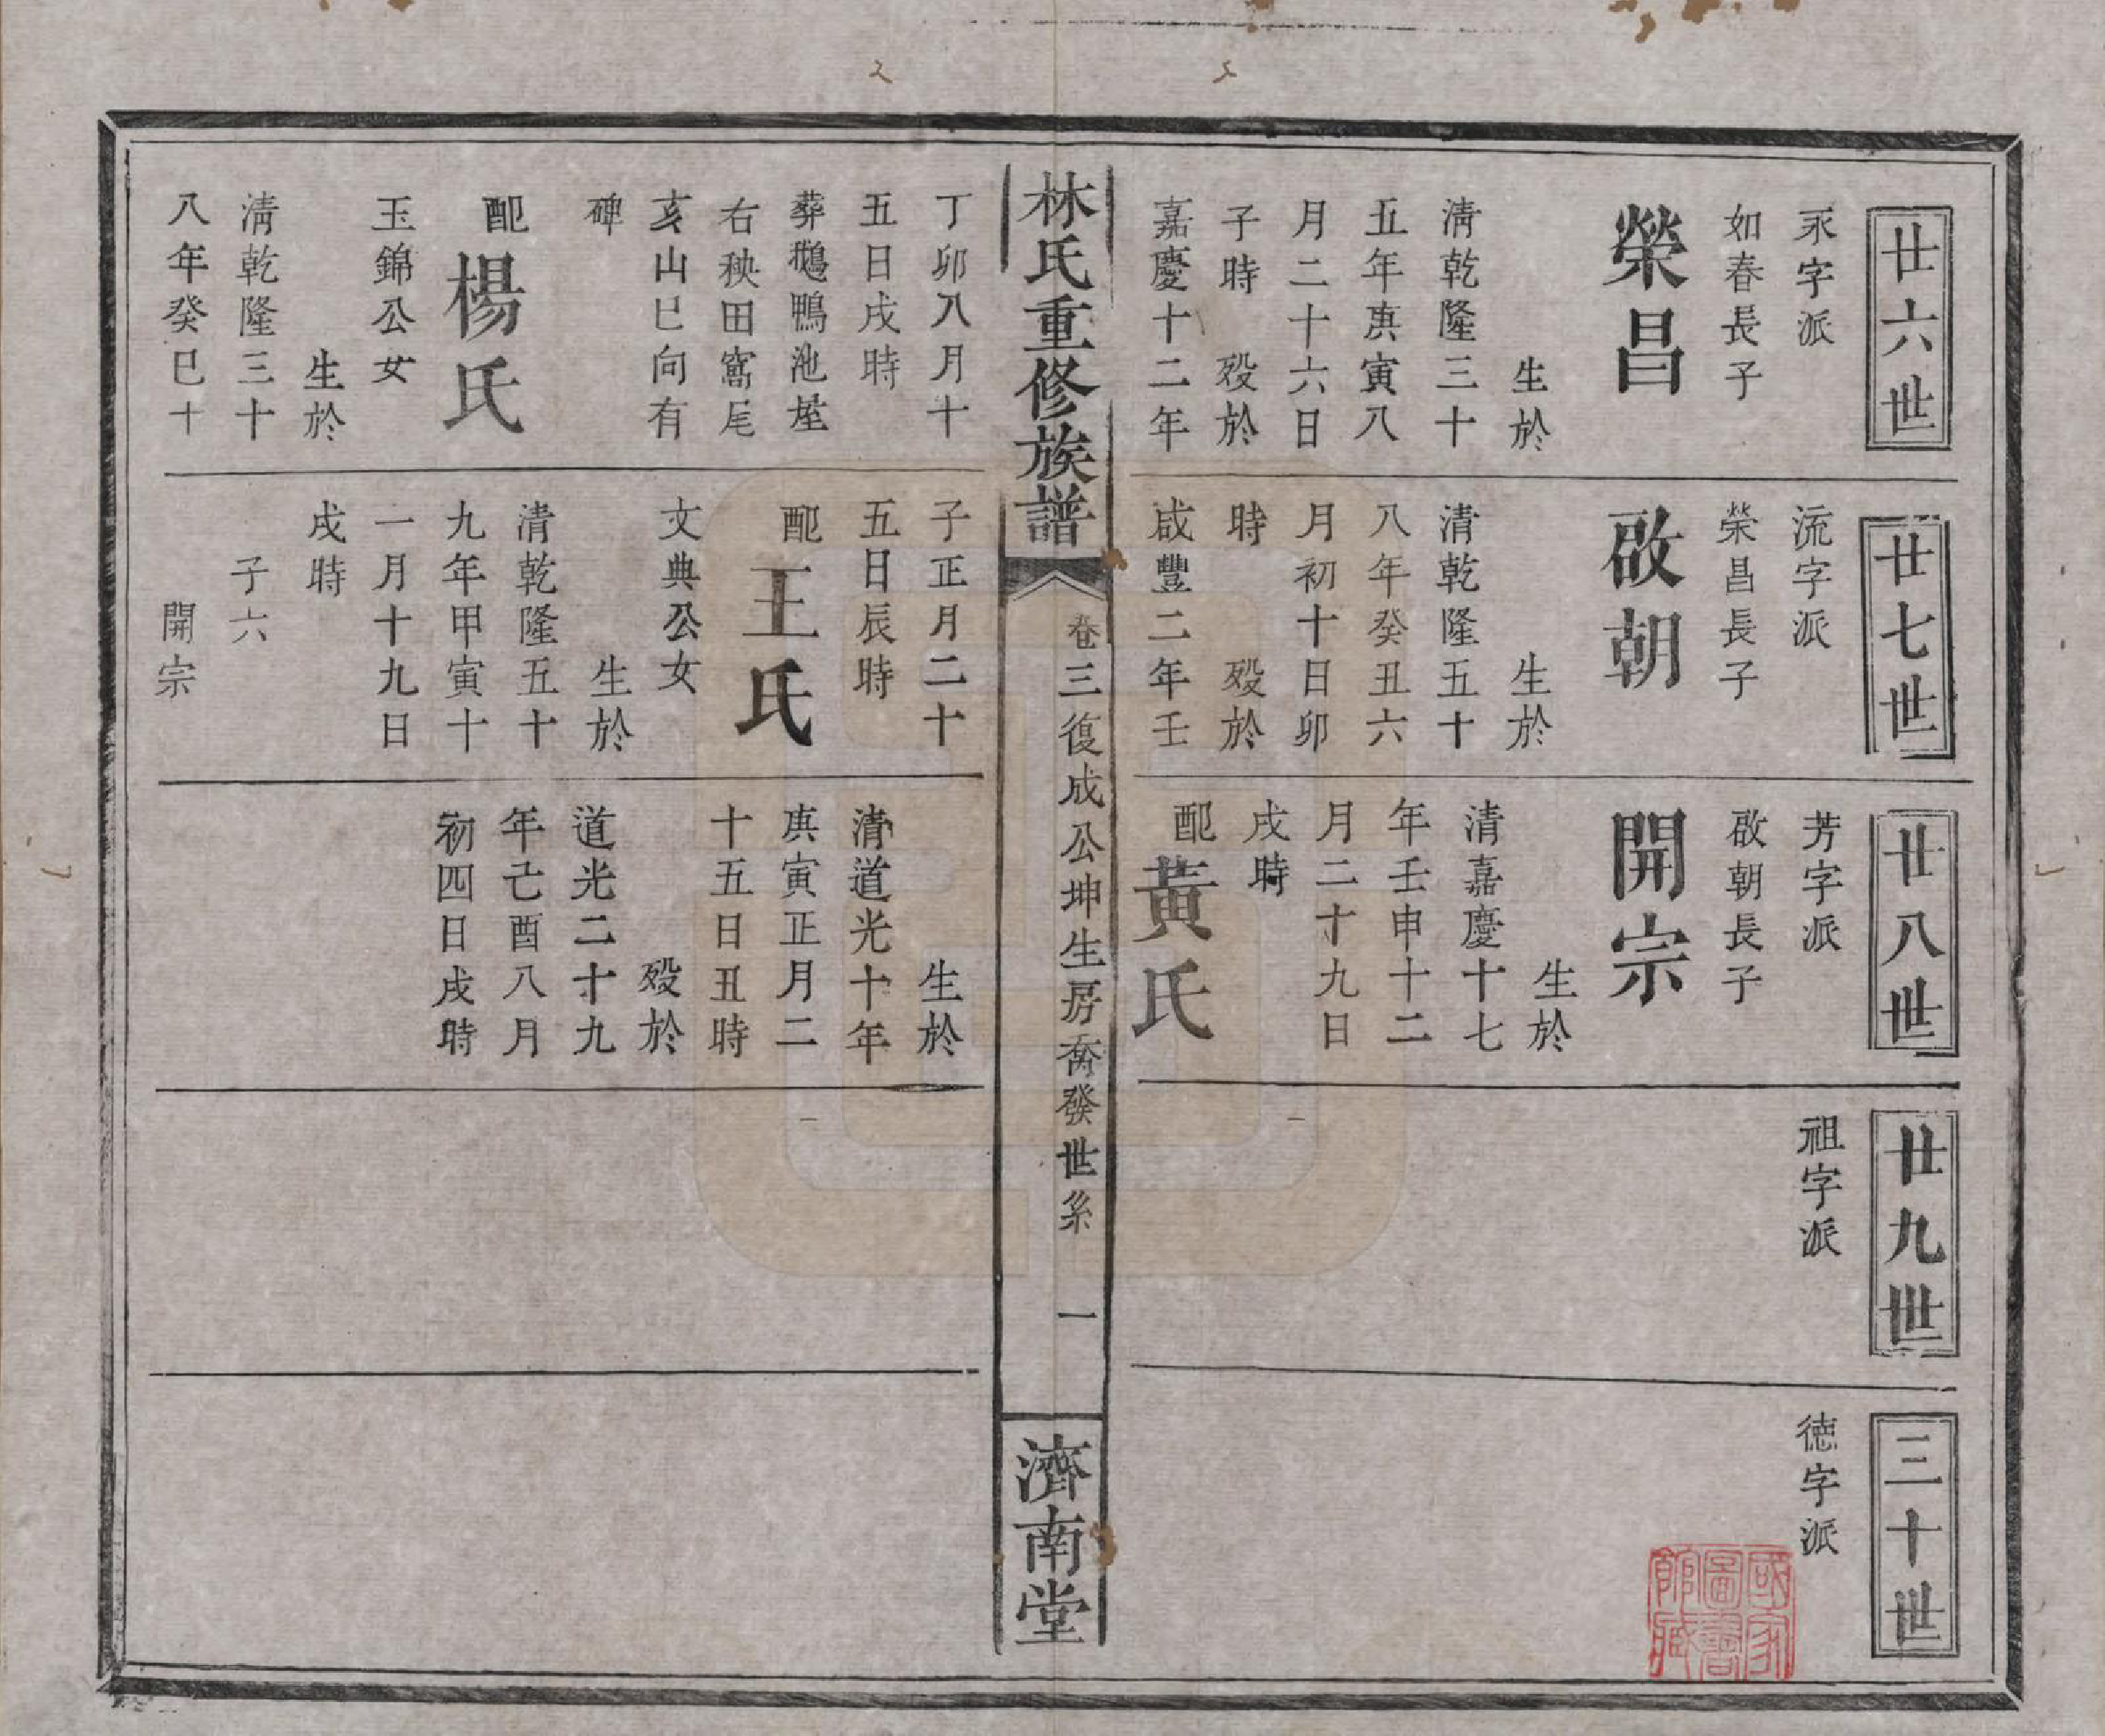 廿六世
永字派
如春長子
榮昌
生於
清乾隆三十
五年庚寅八
月二十六日
子時 歿於
嘉慶十二年
丁卯八月十
五日戌時
葬鵝鴨池塋
右秧田窩尾
亥山巳向有
碑
配楊氏
玉錦公女
生於
清乾隆三十
八年癸巳十
廿七世
流字派
榮昌長子
啟朝
生於
清乾隆五十
八年癸丑六
月初十日卯
時 歿於
咸豐二年壬
子正月二十
五日辰時
配王氏
文典公女
生於
清乾隆五十
九年甲寅十
一月十九日
戌時
子六
開宗
廿八世
芳字派
啟朝長子
開宗
生於
清嘉慶十七
年壬申十二
月二十九日
戌時
配黃氏
生於
清道光十年
庚寅正月二
十五日丑時
歿於
道光二十九
年己酉八月
初四日戌時
廿九世
祖字派
三十世
德字派
林氏重修族譜
卷三復成公坤生房喬發世系 一
濟南堂
國家
圖書
館藏